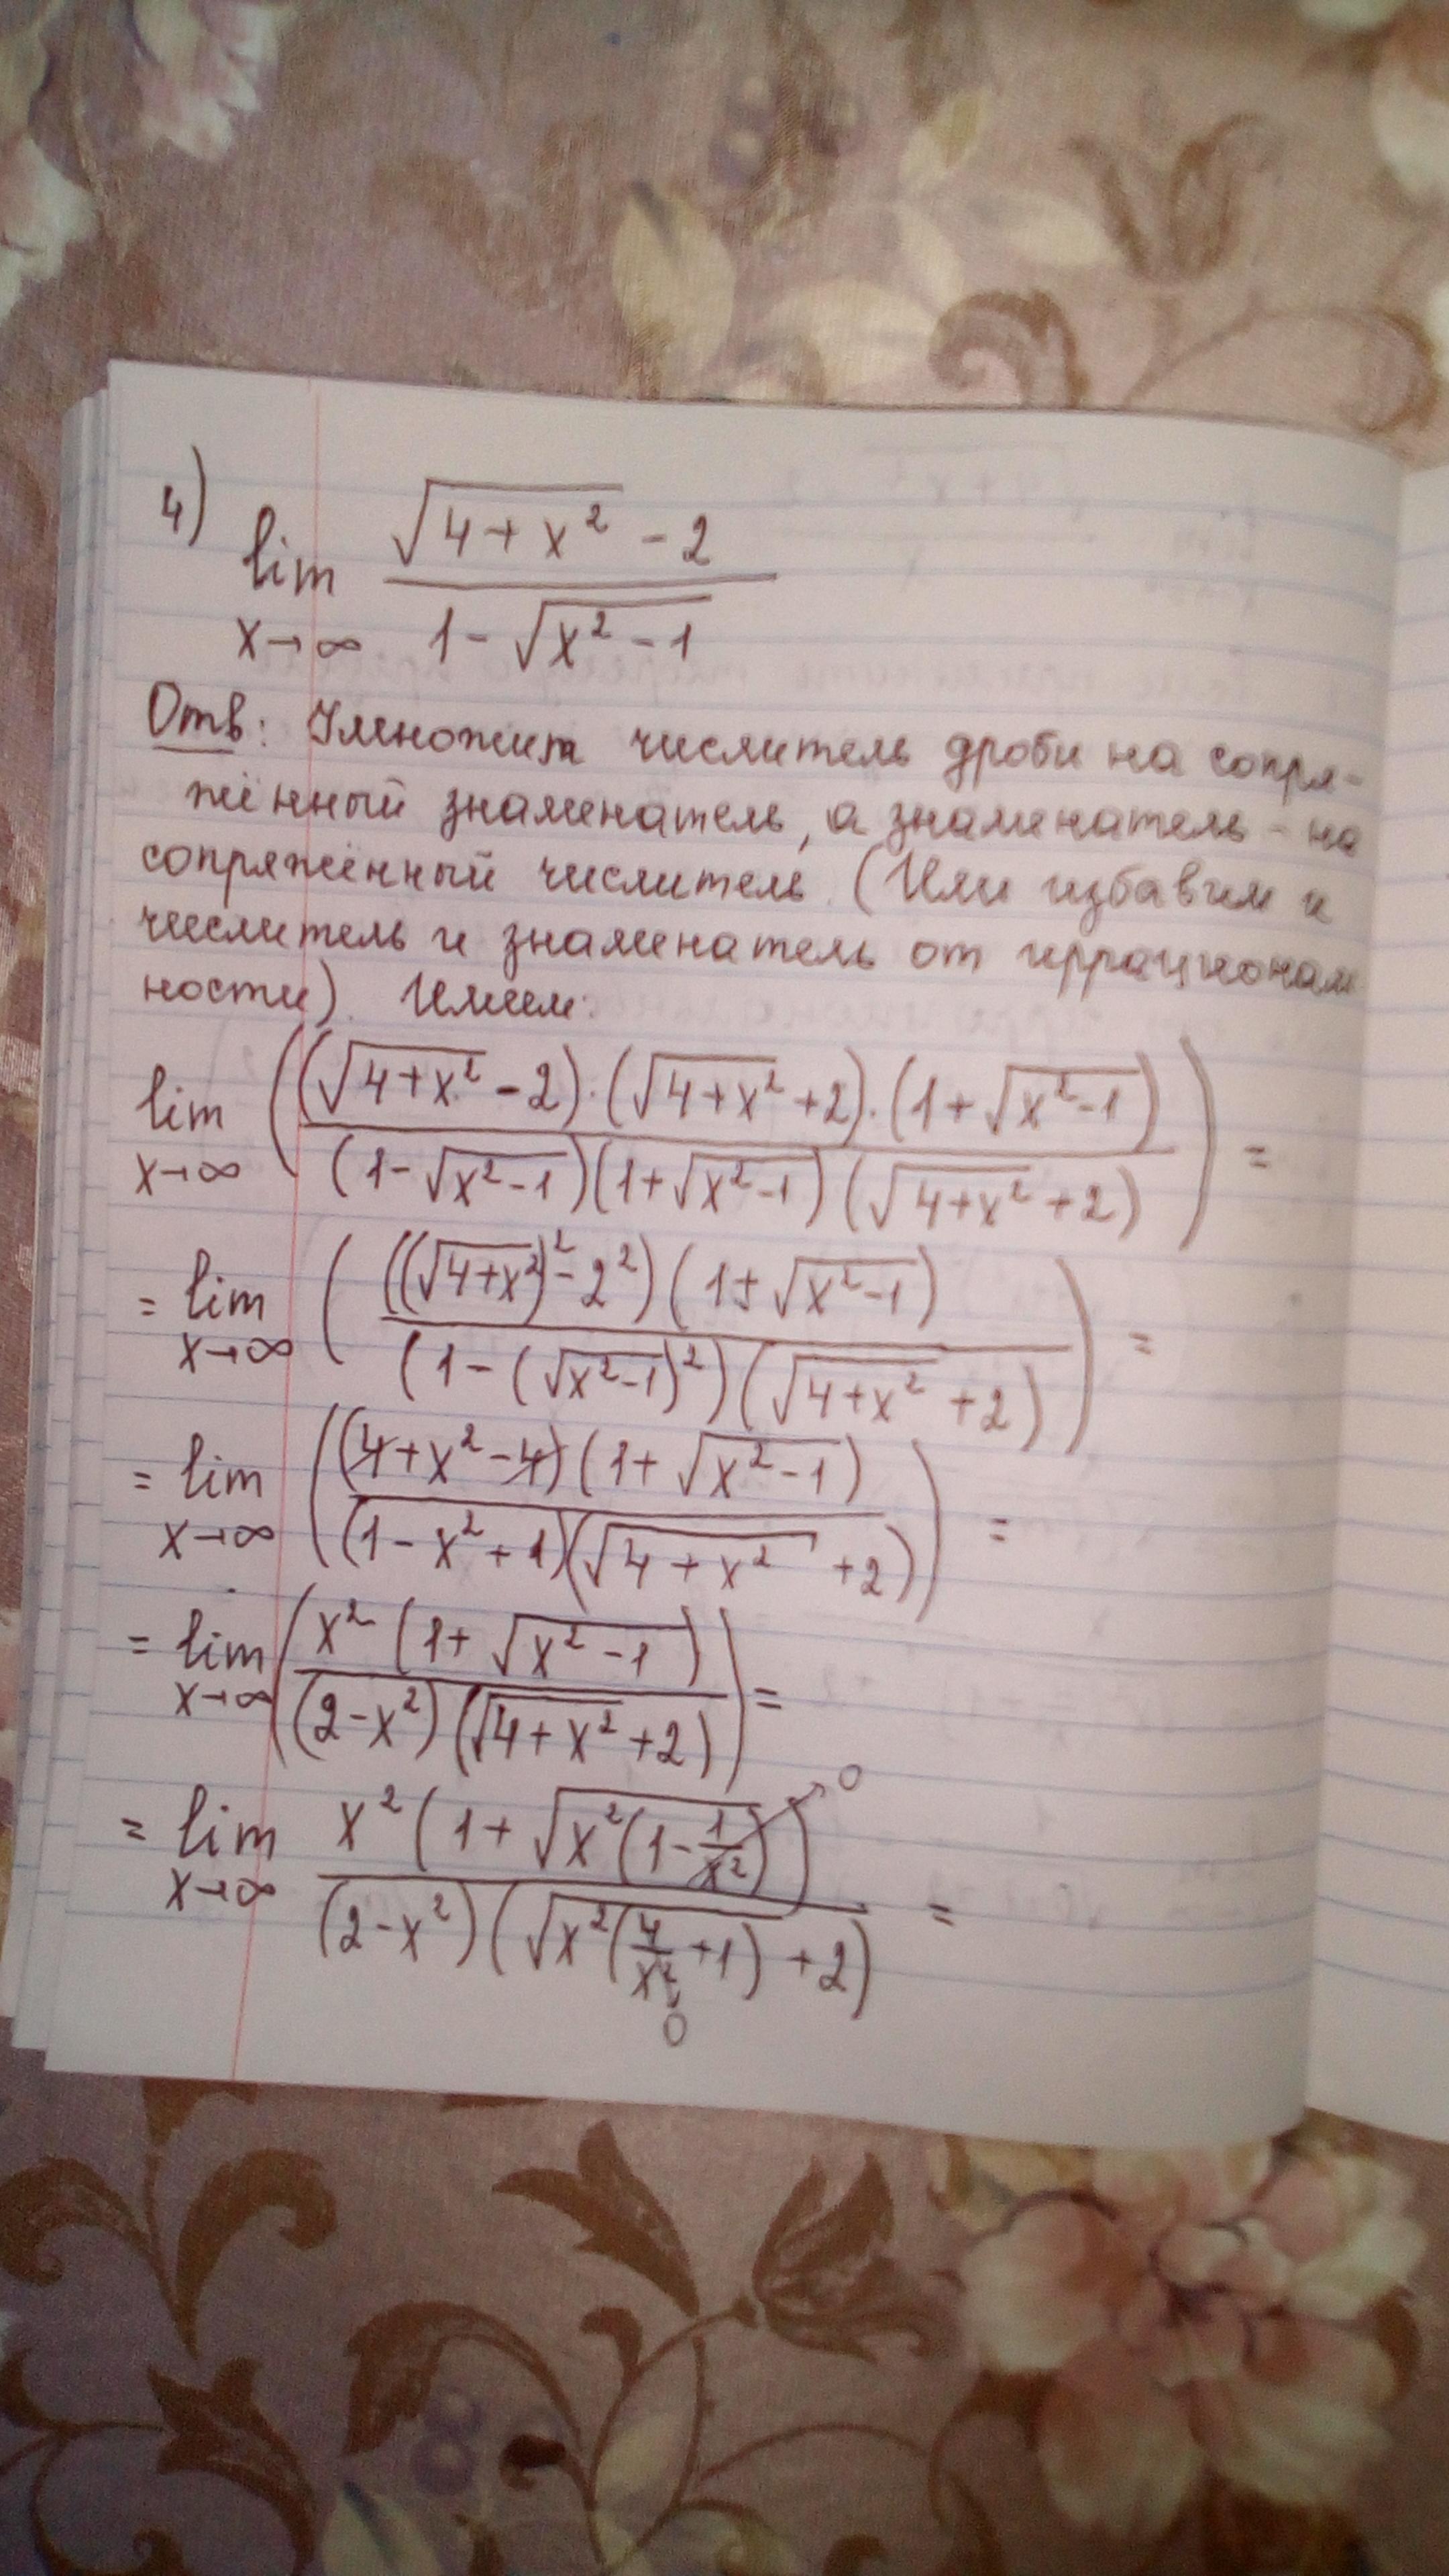 4) lim x→∞ (√(4+x²) - 2) / (1 - √(x² - 1))
Отв: Умножим числитель дроби на сопря-
жённый знаменатель, а знаменатель - на
сопряжённый числитель. (Или избавим и
числитель и знаменатель от иррациональ
ности). Имеем:
lim x→∞ ( ((√(4+x²) - 2)·(√(4+x²) + 2)·(1 + √(x²-1))) / ((1 - √(x²-1))(1 + √(x²-1))(√(4+x²) + 2)) ) =
= lim x→∞ ( (((√(4+x²))² - 2²)(1 + √(x²-1))) / ((1 - (√(x²-1))²)(√(4+x²) + 2)) ) =
= lim x→∞ ( ((4+x²-4)(1 + √(x²-1))) / ((1 - x² + 1)(√(4+x²) + 2)) ) =
= lim x→∞ ( (x²(1 + √(x²-1))) / ((2-x²)(√(4+x²) + 2)) ) =
= lim x→∞ (x²(1 + √(x²(1 - 1/x²)))) / ((2-x²)(√(x²(4/x² + 1)) + 2)) =
0
0